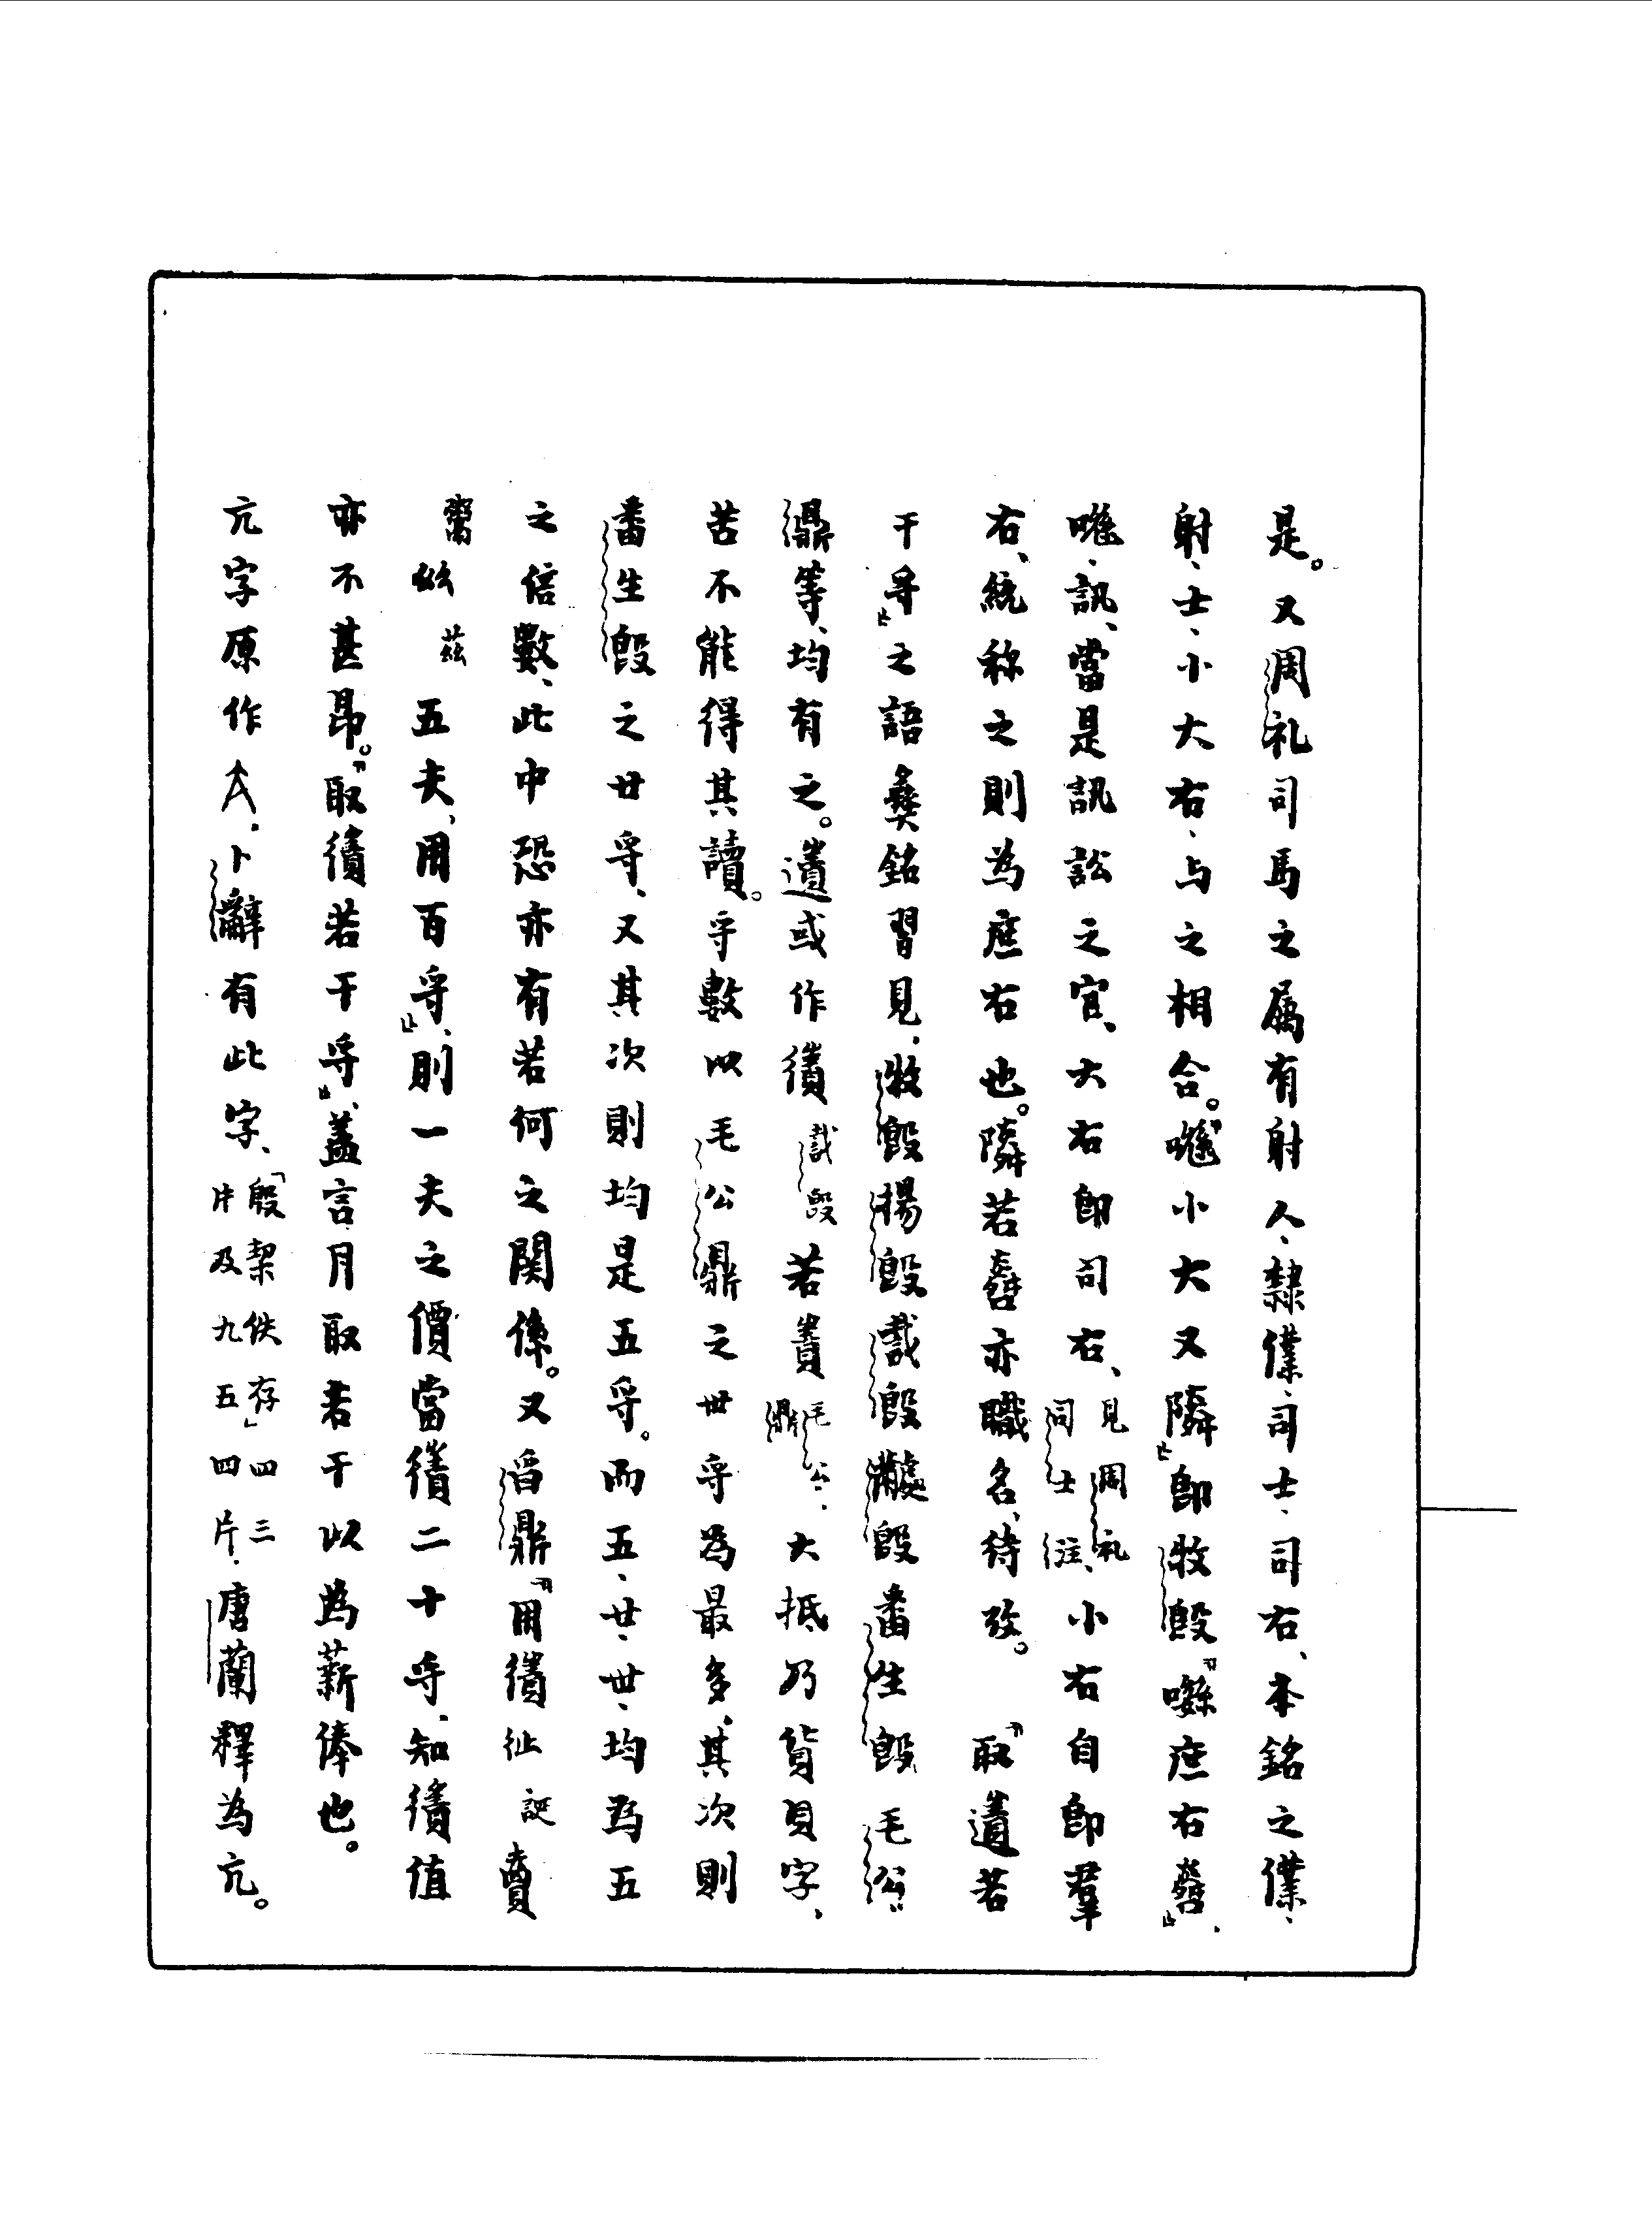 是。又周礼司馬之属有射人、隸僕、司士、司右、本銘之僕、
射、士、小大右、与之相合。「小大又隣」即牧𣪘「庶右」、
訊、當是訊訟之官、大右即司右、見周礼司士注、小右自即羣
右、統称之則為庶右也。隣若亦職名、待攷。「取若
干寽」之語彝銘習見、牧𣪘揚𣪘𢦚𣪘𣪘番生𣪘毛公
鼎等、均有之。或作𢦚𣪘若毛公鼎、大抵乃貨貝字、
苦不能得其讀。寽數以毛公鼎之卅寽為最多、其次則
番生𣪘之廿寽、又其次則均是五寽。而五、廿、卅、均為五
之倍數、此中恐亦有若何之関係。又曶鼎「用誕賣
茲五夫、用百寽」、則一夫之價當二十寽、知值
亦不甚昂。「取若干寽」、蓋言月取若干以為薪俸也。
亢字原作、卜辭有此字、「殷契佚存」四三片及九五四片、唐蘭釋為亢。